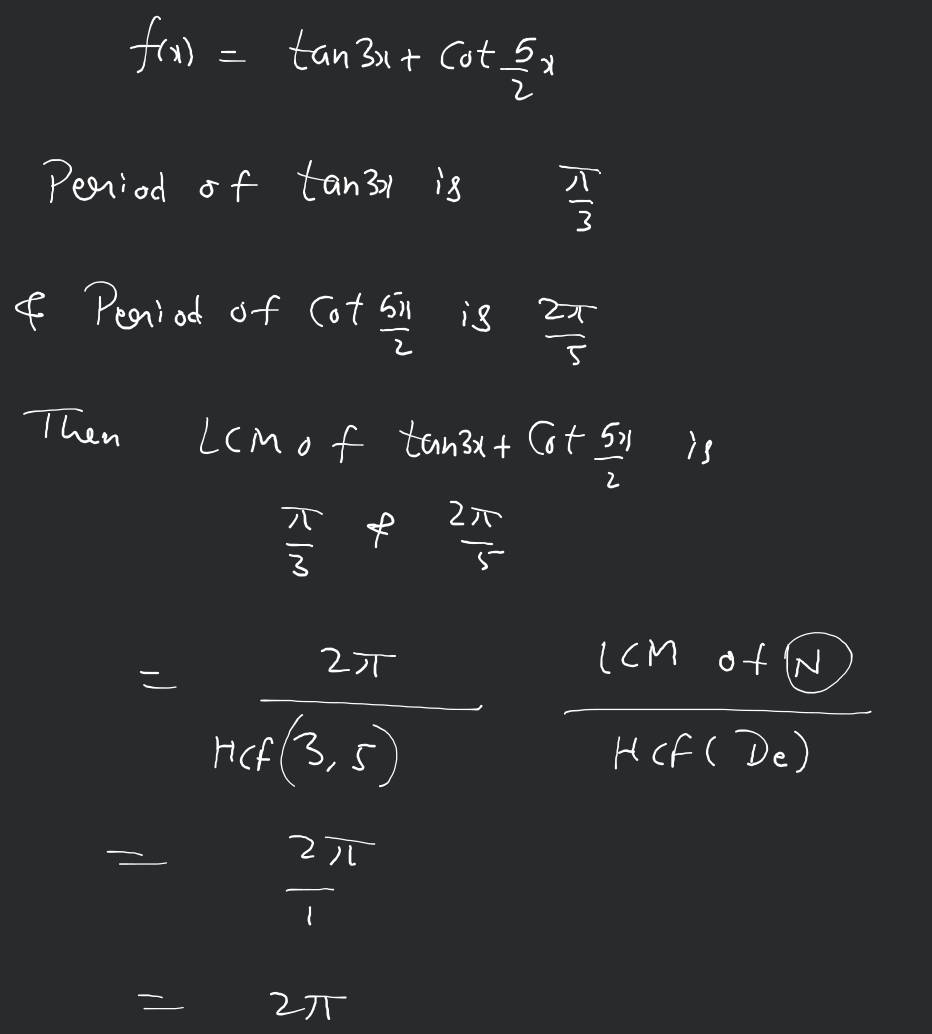 f(x) = tan 3x + Cot 5/2 x
Period of tan 3x is π/3
& Period of Cot 5x/2 is 2π/5
Then LCM of tan 3x + Cot 5x/2 is
π/3 & 2π/5
= 2π/HCf(3, 5) LCM of N/HCf(De)
= 2π/1
= 2π